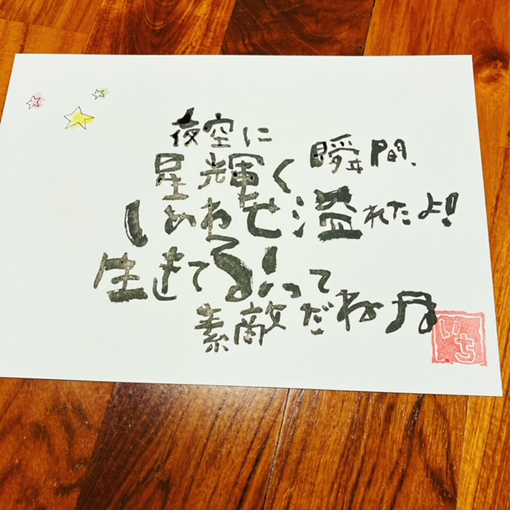 夜空に
星輝く瞬間、
しあわせ溢れたよ!
生きてる!って
素敵だね♫
いち